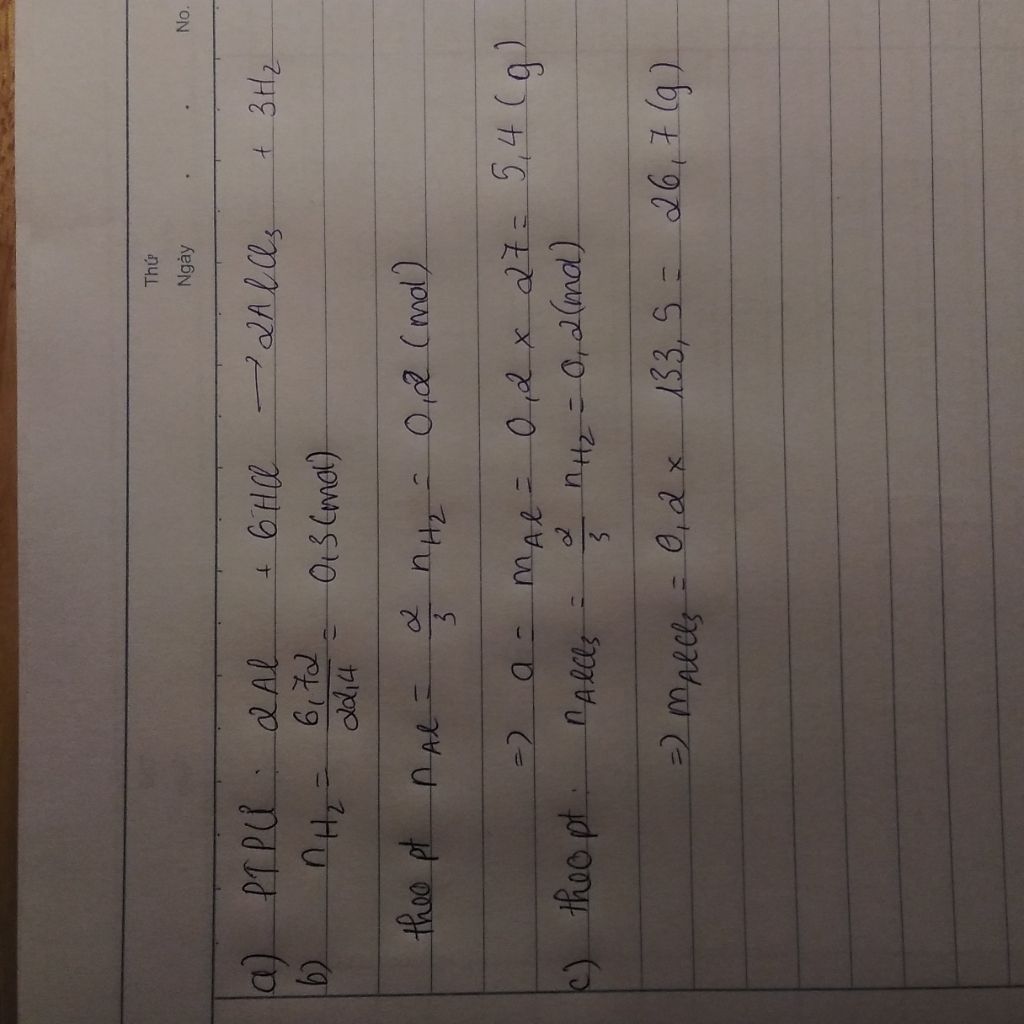 Thứ
Ngày . . No.
a) PTPƯ. 2Al + 6HCl → 2AlCl₃ + 3H₂
b) nH₂ = 6,72/22,4 = 0,3 (mol)
theo pt nAl = 2/3 nH₂ = 0,2 (mol)
=) a = mAl = 0,2 x 27 = 5,4 (g)
c) theo pt. nAlCl₃ = 2/3 nH₂ = 0,2 (mol)
=) mAlCl₃ = 0,2 x 133,5 = 26,7 (g)